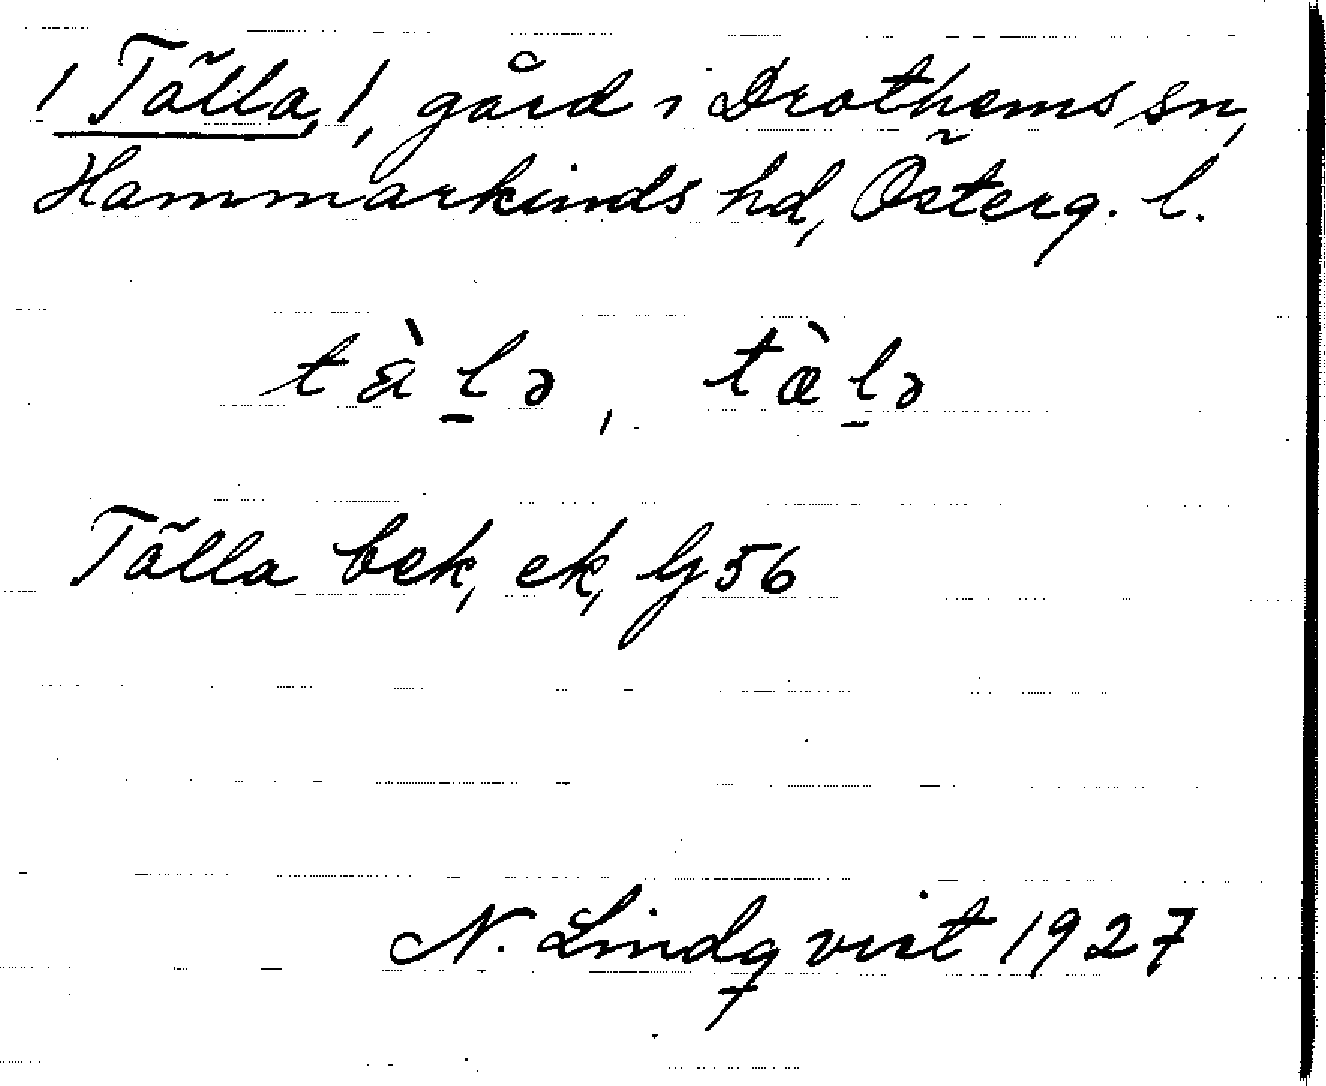 / Tälla, /, gård i Drothems sn,
Hammarkinds hd, Österg. l.
tä̀l̠ə, tæ̀l̠ə
Tälla bek, ek, G 56
N. Lindqvist 1927